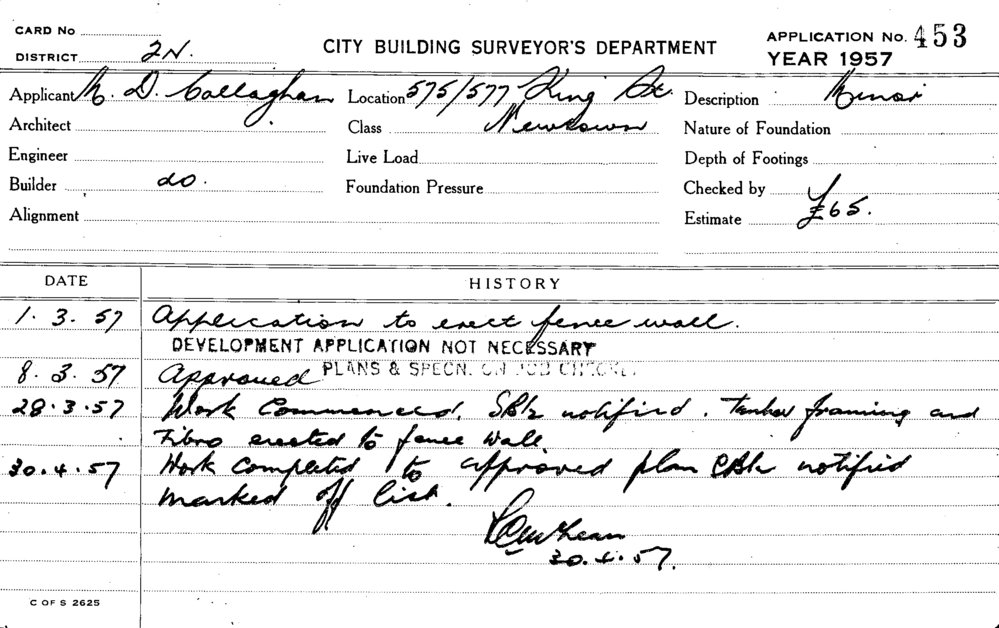 CARD No
DISTRICT 2N.
CITY BUILDING SURVEYOR'S DEPARTMENT
APPLICATION No. 453
YEAR 1957
Applicant M. D. Callaghan
Location 575/577 King St.
Newtown
Description Minor
Architect
Class
Nature of Foundation
Engineer
Live Load
Depth of Footings
Builder do.
Foundation Pressure
Checked by
Alignment
Estimate £65.
DATE HISTORY
1.3.57 Application to erect fence wall.
DEVELOPMENT APPLICATION NOT NECESSARY
8.3.57 Approved PLANS & SPECN. ON JOB
28.3.57 Work Commenced. notified. Timber framing and
Fibro erected to fence wall
30.4.57 Work Completed to approved plan notified
marked off list.
30.4.57.
C OF S 2625